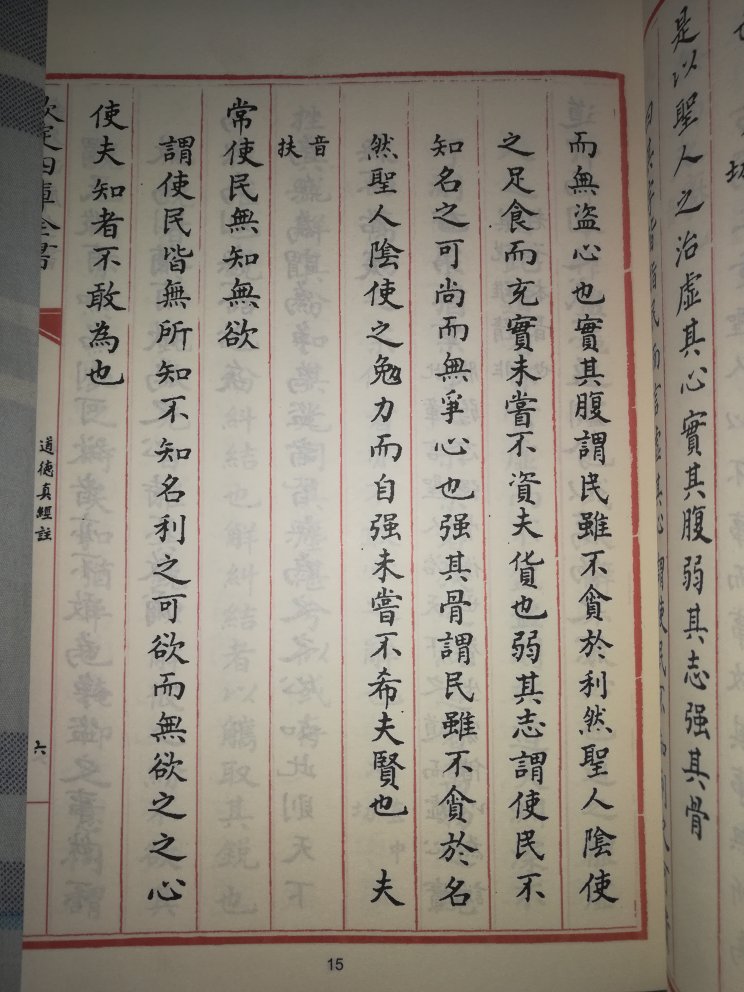 是以聖人之治虛其心實其腹弱其志强其骨
而無盜心也實其腹謂民雖不貪於利然聖人陰使
之足食而充實未嘗不資夫貨也弱其志謂使民不
知名之可尚而無爭心也强其骨謂民雖不貪於名
然聖人陰使之勉力而自强未嘗不希夫賢也 夫
音扶
常使民無知無欲
謂使民皆無所知不知名利之可欲而無欲之之心
使夫知者不敢為也
欽定四庫全書
道德真經註
六
15